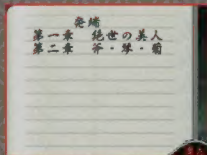 発端
第一章 絶世の美人
第二章 斧・琴・菊